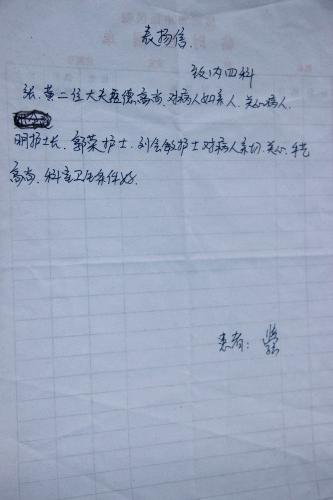 表扬信.
致内四科
张、黄二位大夫医德高尚.对病人如亲人.关心病人.
明护士长、郭荣护士.刘会敏护士对病人亲切.关心.手艺
高尚.科室卫生条件好.
患者: